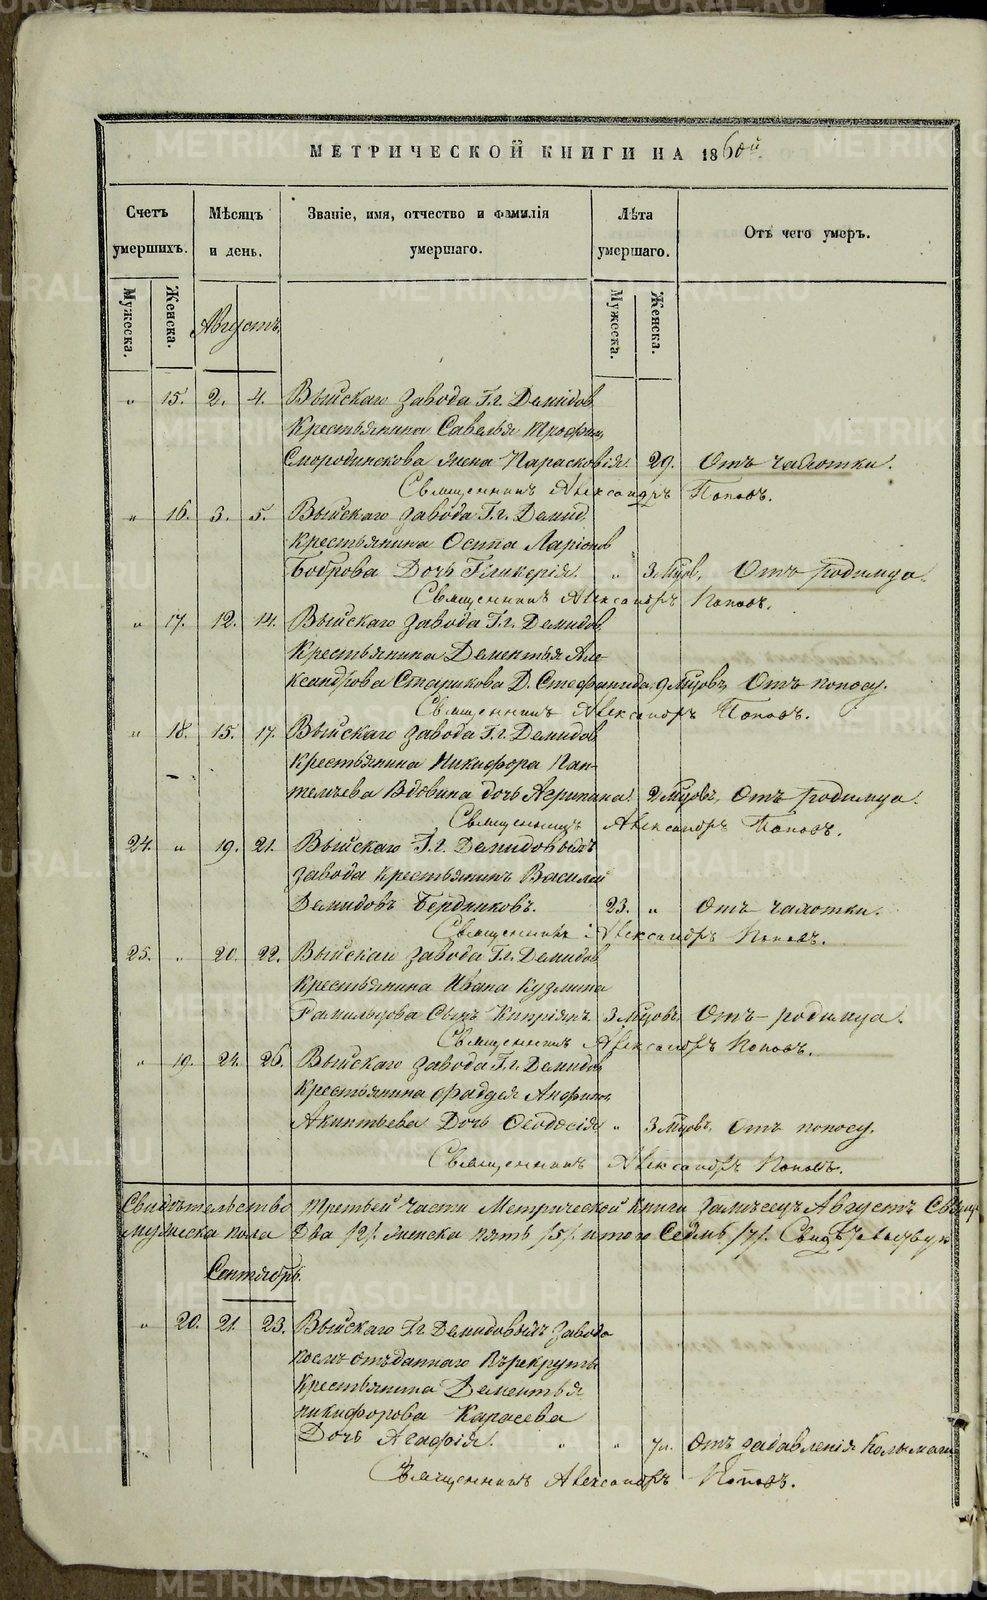 МЕТРИЧЕСКОЙ КНИГИ НА 1860й.
Счетъ умершихъ. Мѣсяцъ и день. Званіе, имя, отчество и фамилія умершаго. Лѣта умершаго. Отъ чего умеръ.
Мужеска. Женска. Мужеска. Женска.
Августъ.
" 15. 2. 4. Выйскаго завода Гг. Демидов.
Крестьянина Савелья Трофим.
Смородинскова жена Парасковія. 29. Отъ чахотки.
Священникъ Александръ Поповъ.
" 16. 3. 5. Выйскаго завода Гг. Демид.
Крестьянина Осипа Ларіонов
Боброва Дочь Гликерія. " 3 мцов. Отъ родимца.
Священникъ Александръ Поповъ.
" 17. 12. 14. Выйскаго завода Гг. Демидов.
Крестьянина Дементья Але-
ксандрова Старикова Д. Стефанида, 9 мцовъ, Отъ поносу.
Священникъ Александръ Поповъ.
" 18. 15. 17. Выйскаго завода Гг. Демидов
Крестьянина Никифора Пан-
телѣева Вдовина дочь Агрипина. 2 мцовъ, Отъ родимца.
Священникъ Александръ Поповъ.
24. " 19. 21. Выйскаго Гг. Демидовыхъ
завода крестьянинъ Василей
Демидовъ Бердниковъ. 23. " Отъ чахотки.
Священникъ Александръ Поповъ.
25. " 20. 22. Выйскаго завода Гг. Демидов
крестьянина Ивана Кузмина
Сынъ Кипріянъ. 3 мцовъ. Отъ родимца.
Священникъ Александръ Поповъ.
" 19. 24. 26. Выйскаго завода Гг. Демидов
Крестьянина Фаддея
Акинтьева Дочь Ѳеодосія " 3 мцовъ, Отъ поносу.
Священникъ Александръ Поповъ.
Свидѣтельство третьей части Метрической книги За мѣсецъ Августъ
мужеска пола Два /2/. женска пять /5/. итого Седмь /7/.
Сентябрь.
" 20. 21. 23. Выйскаго Гг. Демидовыхъ завода
отъданнаго въ рекруты
Крестьянина Дементья
никифорова Карасева
Дочь Агафія. " " 7 л. Отъ задавленія
Священникъ Александръ Поповъ.
METRIKI.GASO-URAL.RU